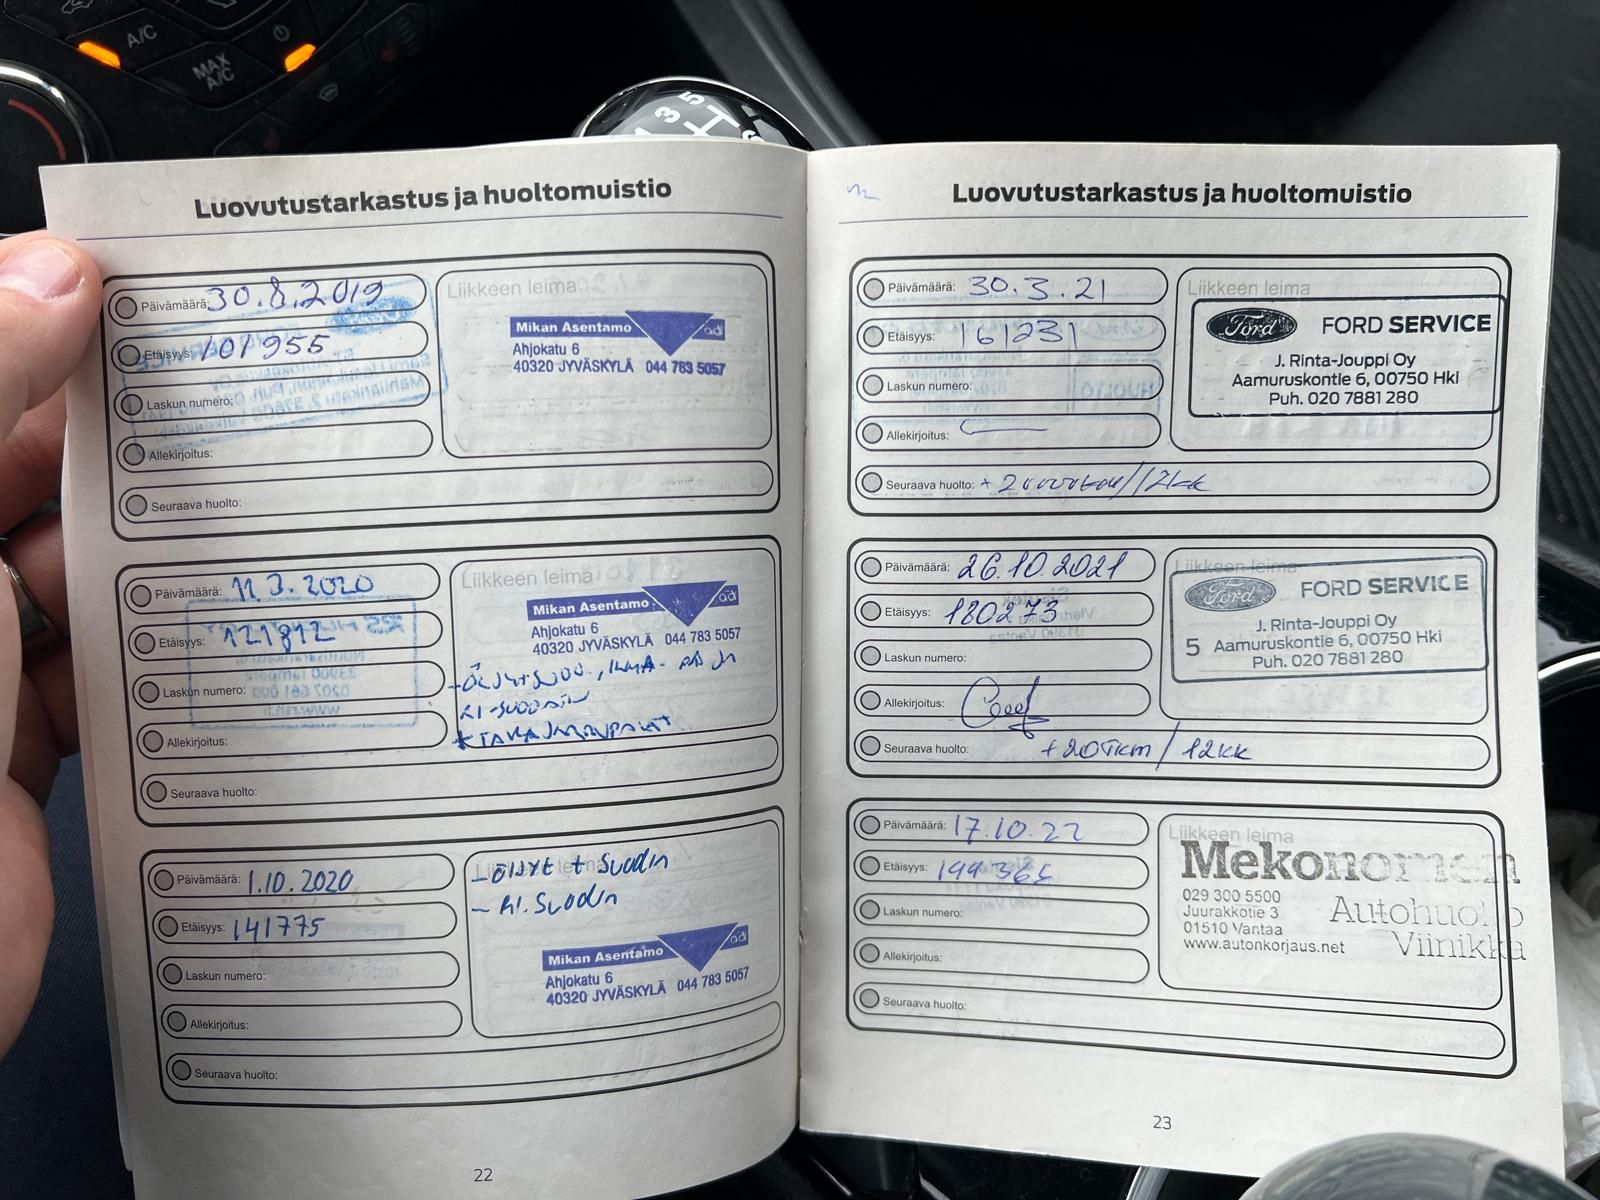 A/C
MAX
A/C
3 5
Luovutustarkastus ja huoltomuistio
Päivämäärä: 30.8.2019
Etäisyys: 101955
Laskun numero:
Allekirjoitus:
Seuraava huolto:
Liikkeen leima
Mikan Asentamo ad
Ahjokatu 6
40320 JYVÄSKYLÄ 044 783 5057
Päivämäärä: 11.3.2020
Etäisyys: 121812
Laskun numero:
Allekirjoitus:
Seuraava huolto:
Liikkeen leima
Mikan Asentamo ad
Ahjokatu 6
40320 JYVÄSKYLÄ 044 783 5057
Päivämäärä: 1.10.2020
Etäisyys: 141775
Laskun numero:
Allekirjoitus:
Seuraava huolto:
- öljyt + suodin
- RI.suodin
Mikan Asentamo ad
Ahjokatu 6
40320 JYVÄSKYLÄ 044 783 5057
22
Luovutustarkastus ja huoltomuistio
Päivämäärä: 30.3.21
Etäisyys: 161231
Laskun numero:
Allekirjoitus:
Seuraava huolto: /12kk
Liikkeen leima
Ford FORD SERVICE
J. Rinta-Jouppi Oy
Aamuruskontie 6, 00750 Hki
Puh. 020 7881 280
Päivämäärä: 26.10.2021
Etäisyys: 180273
Laskun numero:
Allekirjoitus:
Seuraava huolto: +20Tkm / 12kk
Liikkeen leima
Ford FORD SERVICE
J. Rinta-Jouppi Oy
5 Aamuruskontie 6, 00750 Hki
Puh. 020 7881 280
Päivämäärä: 17.10.22
Etäisyys:
Laskun numero:
Allekirjoitus:
Seuraava huolto:
Liikkeen leima
Mekonomen
029 300 5500
Juurakkotie 3
01510 Vantaa
www.autonkorjaus.net
Autohuolto
Viinikka
23